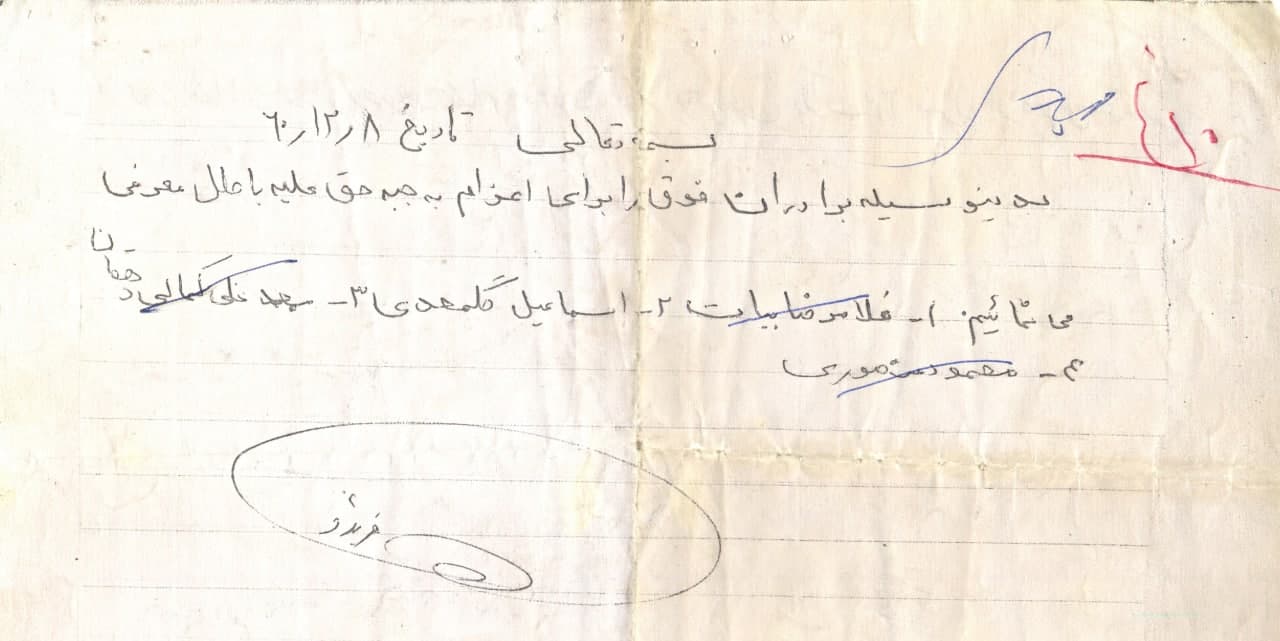 بسمه تعالی تاریخ ۶۰/۱۲/۸
بدینوسیله برادران فوق را برای اعزام به جبهه حق علیه باطل معرفی
می نمائیم. ۱- غلامرضا بیات ۲- اسماعیل گلمحمدی ۳- محمد علی کمالی دهقان
۴- محمود تیموری